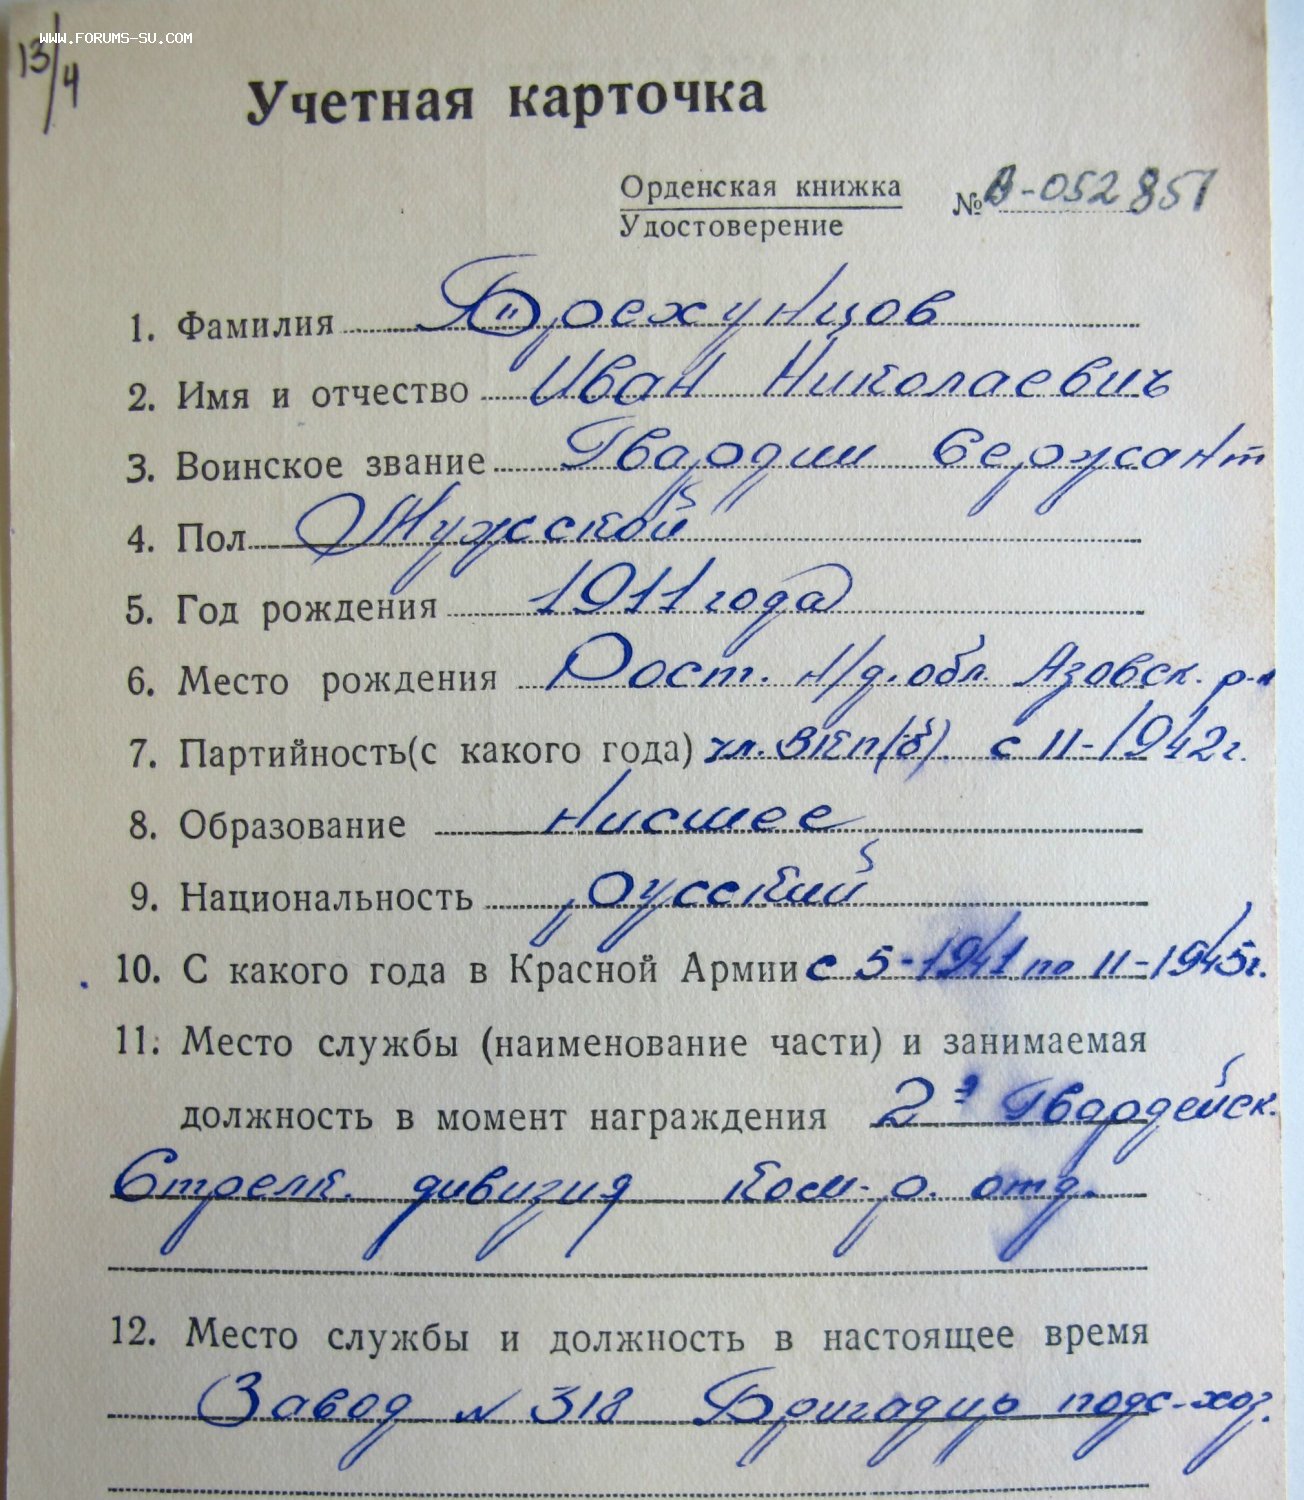 www.forums-su.com
13/4
Учетная карточка
Орденская книжка
Удостоверение
№ В-052851
1. Фамилия Брехунцов
2. Имя и отчество Иван Николаевич
3. Воинское звание Гвардии Сержант
4. Пол Мужской
5. Год рождения 1911 года
6. Место рождения Рост. Н/д. обл. Азовск. р-н
7. Партийность (с какого года) чл. ВКП(б). с II-1942г.
8. Образование Нисшее
9. Национальность русский
10. С какого года в Красной Армии с 5-1941 по II-1945г.
11. Место службы (наименование части) и занимаемая
должность в момент награждения 2я Гвардейск.
Стрелк. дивизия Ком-р. отд.
12. Место службы и должность в настоящее время
Завод N 318 Бригадир подс-хоз.